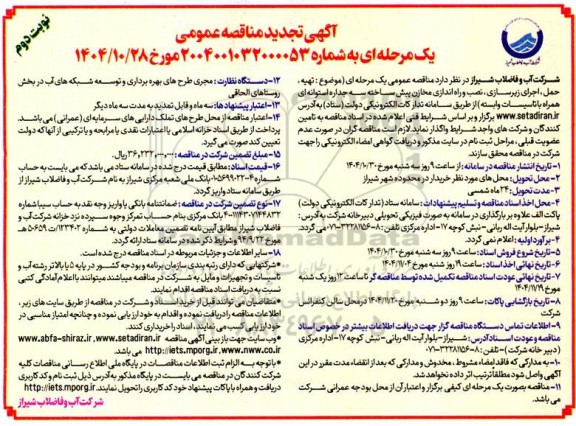 آگهی تجدید مناقصه عمومی
یک مرحله ای به شماره ۲۰۰۴۰۰۱۰۳۲۰۰۰۰۵۳ مورخ ۱۴۰۴/۱۰/۲۸
نوبت دوم
شرکت آب و فاضلاب شیراز در نظر دارد مناقصه عمومی یک مرحله ای (موضوع : تهیه ،
حمل ، اجرای زیرسازی ، نصب و راه اندازی مخازن پیش ساخته سه جداره استوانه ای
همراه با تاسیسات وابسته) از طریق سامانه تدارکات الکترونیکی دولت (ستاد) به آدرس
www.setadiran.ir برگزار و بر اساس شرایط فنی اعلام شده در اسناد مناقصه به تامین
کنندگان و شرکت های واجد شرایط واگذار نماید. لازم است مناقصه گران در صورت عدم
عضویت قبلی ، مراحل ثبت نام در سایت مذکور و دریافت گواهی امضاء الکترونیکی را جهت
شرکت در مناقصه محقق سازند.
۱- تاریخ انتشار مناقصه در سامانه : از ساعت ۹ روز سه شنبه مورخ ۱۴۰۴/۱۰/۳۰
۲- محل تحویل : محل های مورد نظر خریدار در محدوده شهر شیراز
۳- مدت تحویل : ۲۴ ماه شمسی
۴- محل اخذ اسناد مناقصه و تسلیم پیشنهادات : سامانه ستاد (تدارکات الکترونیکی دولت)
پاکت الف علاوه بر بارگذاری در سامانه به صورت فیزیکی تحویل دبیرخانه شرکت به آدرس :
شیراز - بلوار آیت اله ربانی - نبش کوچه ۱۷ - اداره مرکزی تلفن : ۸-۳۲۲۸۱۱۵۶-۰۷۱ می گردد.
۴- برآورد اولیه : اعلام نمی گردد.
۵- تاریخ شروع فروش اسناد : ساعت ۹ روز سه شنبه مورخ
۶- تاریخ نهائی اخذ اسناد : ساعت ۱۹ روز شنبه مورخ
۷- تاریخ نهائی عودت اسناد مناقصه تکمیل شده توسط مناقصه گر تا ساعت ۱۲ روز یک شنبه
مورخ ۱۴۰۴/۱۱/۱۹
۸- تاریخ بازگشایی پاکات : ساعت ۹ روز دوشنبه مورخ ۱۴۰۴/۱۱/۲۰ در محل سالن کنفرانس
شرکت
۹- اطلاعات تماس دستگاه مناقصه گزار جهت دریافت اطلاعات بیشتر در خصوص اسناد
مناقصه و عودت اسناد آدرس : شیراز - بلوار آیت اله ربانی - نبش کوچه ۱۷ - اداره مرکزی
(دبیرخانه شرکت) - تلفن : ۸-۳۲۲۸۱۱۵۶-۰۷۱
۱۰- به مدارکی که فاقد امضاء، مشروط ، مخدوش و مدارکی که بعد از انقضاء مدت مقرر در این
آگهی واصل شود مطلقاً ترتیب اثر داده نخواهد شد.
۱۱- مناقصه بصورت یک مرحله ای کیفی برگزار و اعتبار آن از محل بودجه عمرانی شرکت
می باشد.
۱۲- دستگاه نظارت : مجری طرح های بهره برداری و توسعه شبکه های آب در بخش
روستاهای الحاقی
۱۳- اعتبار پیشنهادها: سه ماه و قابل تمدید به مدت سه ماه دیگر
۱۴- اعتبار مناقصه از محل طرح های تملک دارایی های سرمایه ای (عمرانی) می باشد.
پرداخت از طریق اسناد خزانه اسلامی یا اعتبارات نقدی یا مرابحه و یا ترکیبی از آنها که دولت
تعیین کند صورت می گیرد.
۱۵- مبلغ تضمین شرکت در مناقصه : ۳۶,۲۳۲,۰۰۰,۰۰۰ ریال.
۱۶- قیمت اسناد : مطابق قیمت درج شده در سامانه ستاد می باشد که می بایست به حساب
شماره بانک ملی شعبه مرکزی شیراز به نام شرکت آب و فاضلاب شیراز از
طریق سامانه ستاد واریز گردد.
۱۷- نوع تضمین شرکت در مناقصه : ضمانتنامه بانکی یا واریز وجه نقد به حساب سیبا شماره
بانک مرکزی بنام حساب تمرکز وجوه سپرده نزد خزانه شرکت آب و
فاضلاب شیراز مطابق آیین نامه تضمین معاملات دولتی به شماره ۱۲۳۴۰۲/ت ۵۰۶۵۹ هـ
مورخ ۹۴/۹/۲۲ و شرایط ذکر شده در سامانه ستاد ارائه گردد.
۱۸- سایر اطلاعات و جزئیات مربوطه در اسناد مناقصه درج شده است.
* شرکتهایی که دارای رتبه بندی سازمان برنامه و بودجه کشور در پایه ۵ یا بالاتر رشته آب و
تاسیسات و تجهیزات و مایل به شرکت در مناقصه میباشند میتوانند با اعلام آمادگی کتبی
نسبت به دریافت اسناد مناقصه اقدام نمایند.
* متقاضیان می توانند قبل از خرید اسناد و شرکت در مناقصه از طریق سایت های زیر،
اطلاعات مناقصه را دریافت نموده و اقدام به خود ارزیابی نموده و چنانچه امتیاز مناسبی در
خود ارزیابی کیفی می نمایند ، اسناد را خریداری کنند.
وب سایت جهت بازبینی آگهی مناقصه : www.abfa-shiraz.ir, www.setadiran.ir
http://iets.mporg.ir, www.nww.co.ir می باشد.
* با توجه به الزام ثبت اطلاعات مناقصات در پایگاه ملی اطلاع رسانی مناقصات کلیه
شرکت کنندگان در مناقصه می بایست در پایگاه مذکور به آدرس ذیل ثبت نام و کد کاربری
دریافت و همراه با پاکات پیشنهاد خود کد کاربری را تحویل نمایند. http://iets.mporg.ir
شرکت آب و فاضلاب شیراز